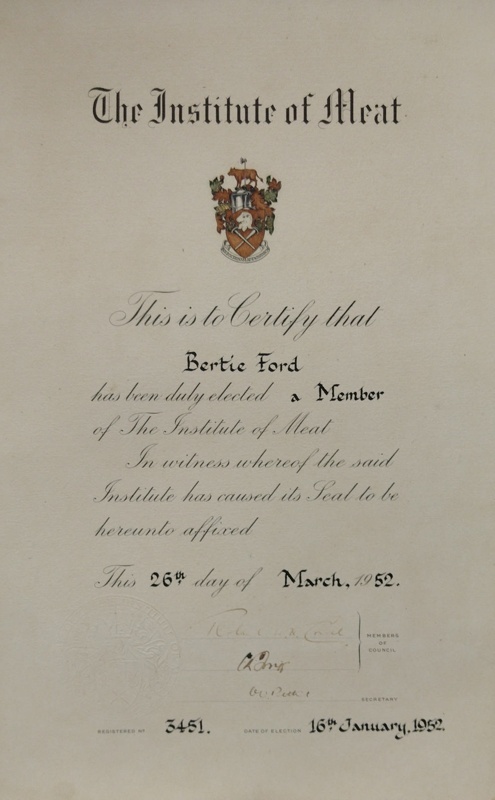 The Institute of Meat
This is to Certify that
Bertie Ford
has been duly elected a Member
of The Institute of Meat
In witness whereof the said
Institute has caused its Seal to be
hereunto affixed
This 26th day of March, 1952.
MEMBERS
OF
COUNCIL
SECRETARY
REGISTERED No 3451. DATE OF ELECTION 16th January, 1952.